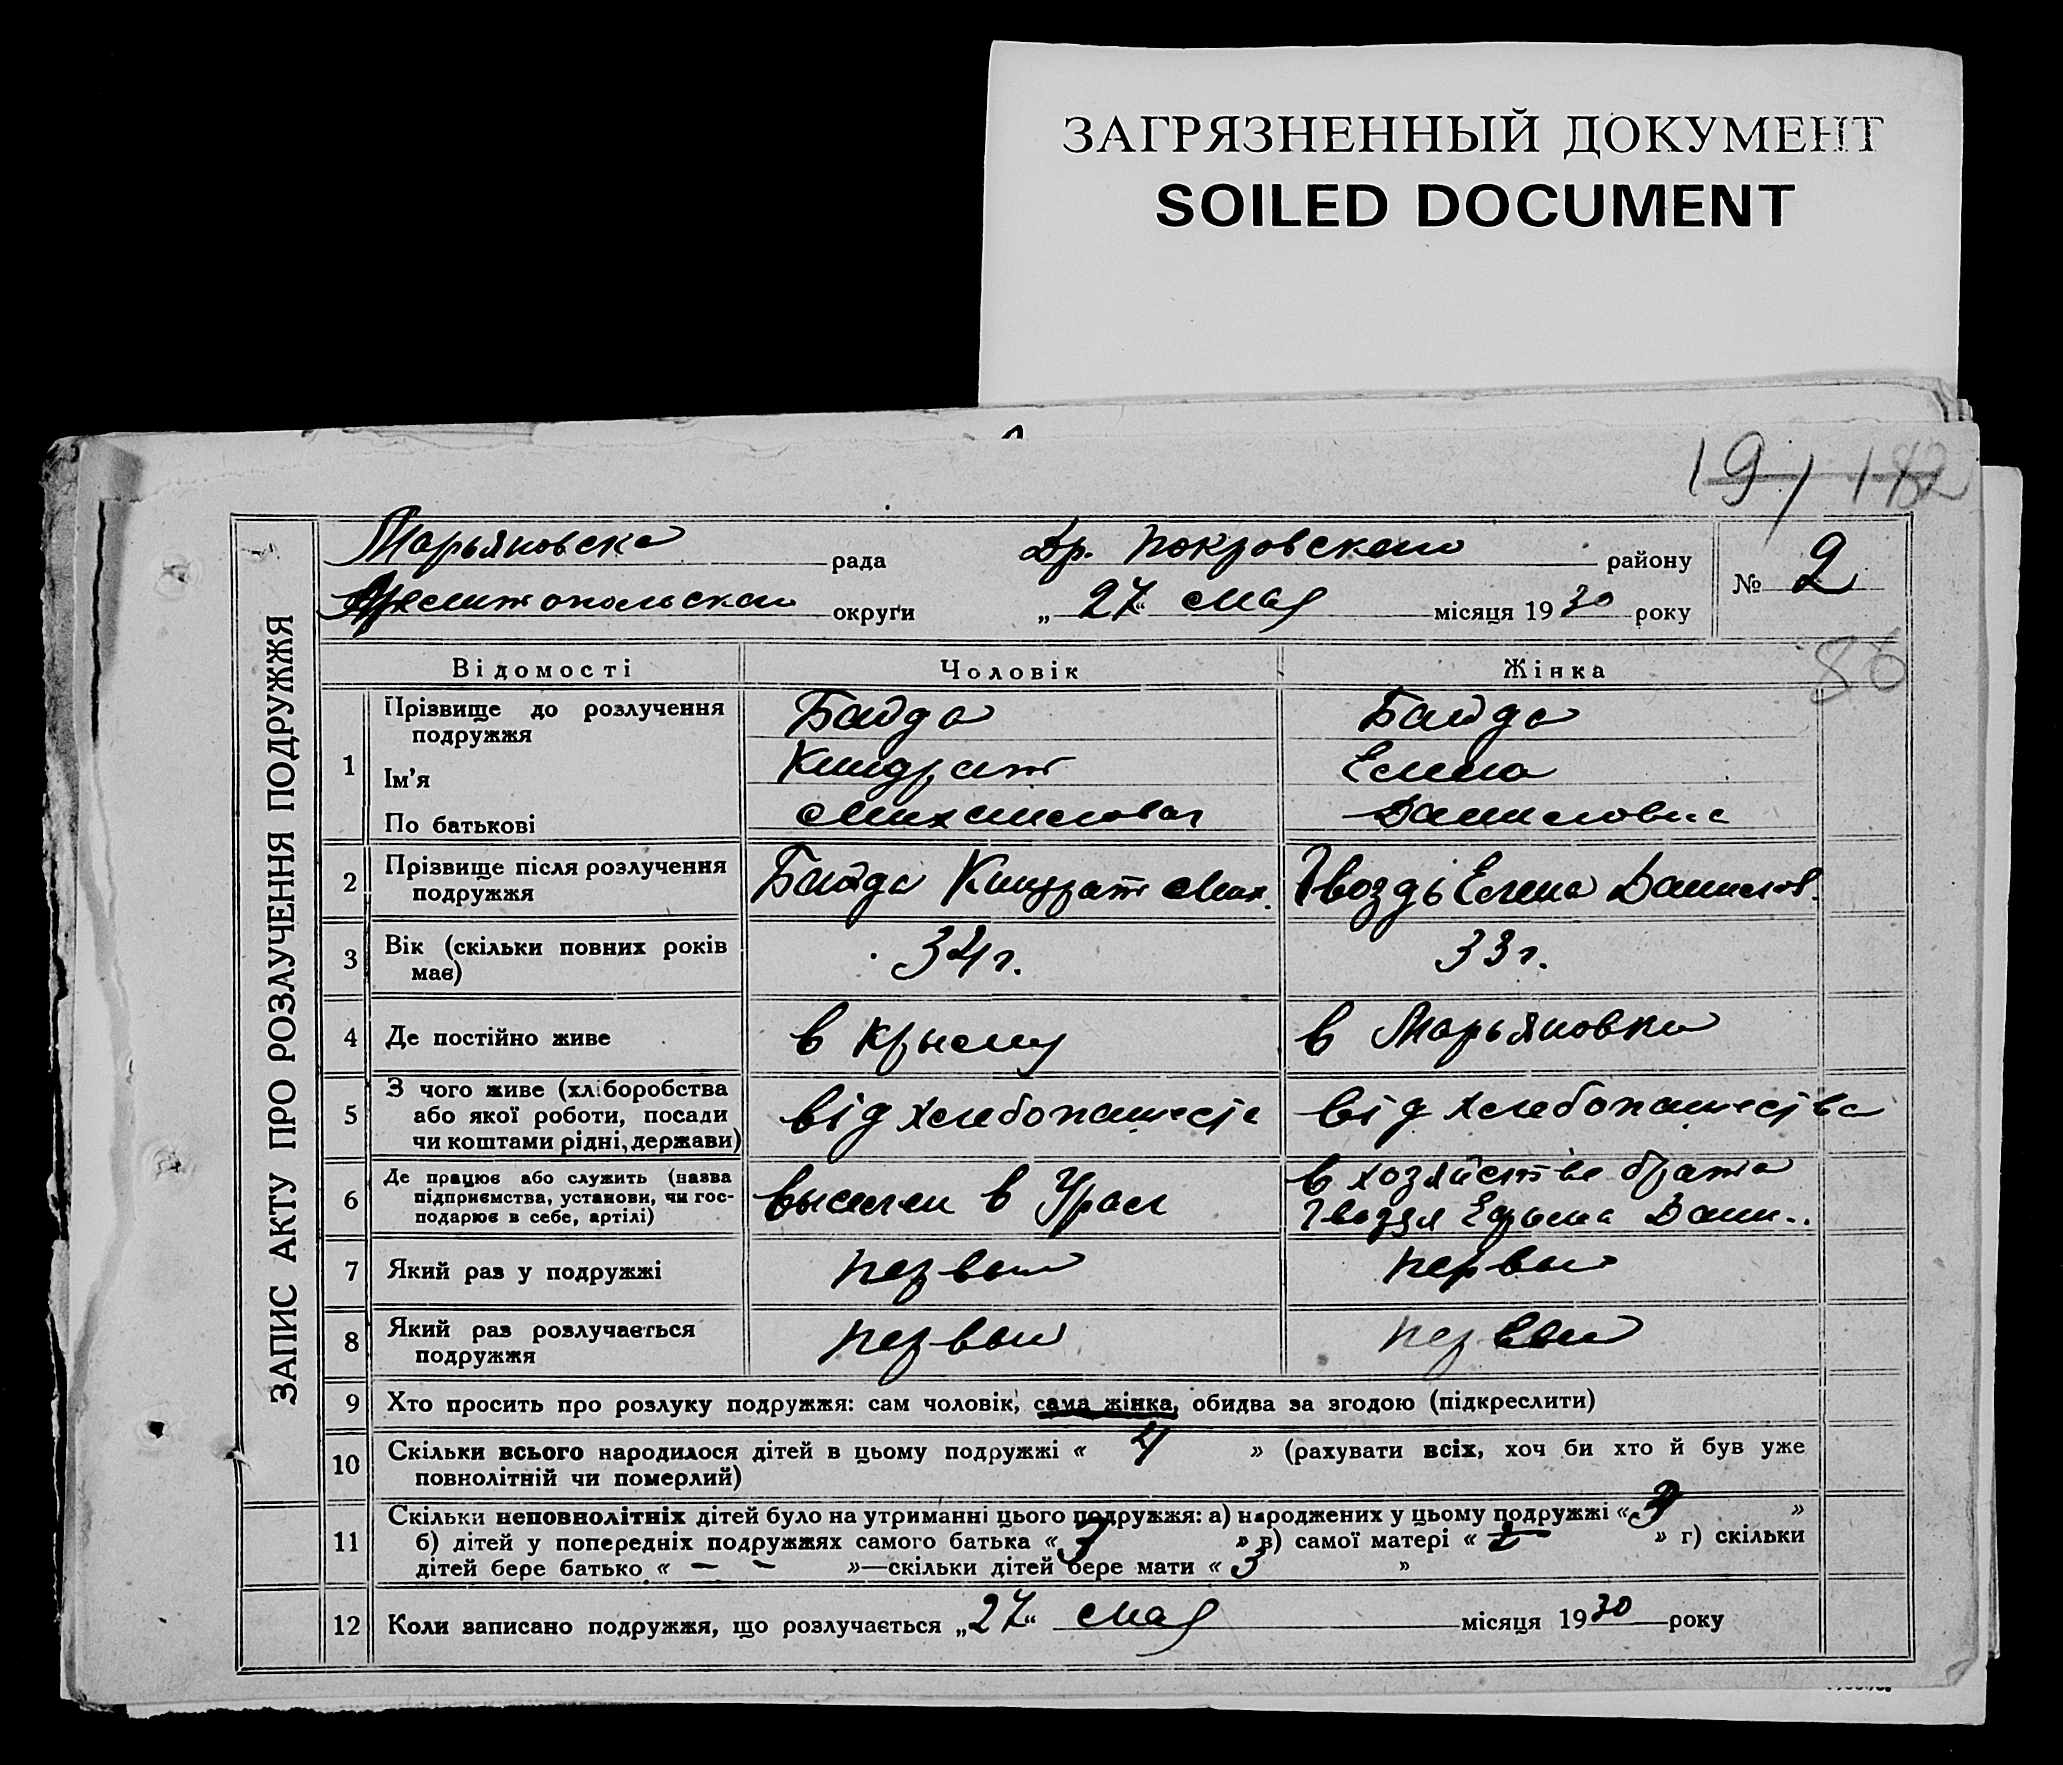 ЗАГРЯЗНЕННЫЙ ДОКУМЕНТ
SOILED DOCUMENT
19/ 182
ЗАПИС АКТУ ПРО РОЗЛУЧЕННЯ ПОДРУЖЖЯ
Марьяновска рада Др. Покровского району № 2
Мелитопольской округи „ 27 “ Мая місяця 19 30 року
86
Відомості Чоловік Жінка
1 Прізвище до розлучення подружжя Байда Байда
Ім’я Киндрат Елена
По батькові Михайлович Даниловна
2 Прізвище після розлучення подружжя Байда Киндрат Мих. Гвоздь Елена Данилов.
3 Вік (скільки повних років має) 34 г. 33 г.
4 Де постійно живе в Крыму в Марьяновки
5 З чого живе (хліборобства або якої роботи, посади чи коштами рідні, держави) від хлебопашества від хлебопашества
6 Де працює або служить (назва підприємства, установи, чи господарює в себе, артілі) выселен в Урал в хозяйстве брата Гвоздя Ефима Дани..
7 Який раз у подружжі первый первый
8 Який раз розлучається подружжя первый первый
9 Хто просить про розлуку подружжя: сам чоловік, сама жінка, обидва за згодою (підкреслити)
10 Скільки всього народилося дітей в цьому подружжі « 4 » (рахувати всіх, хоч би хто й був уже
повнолітній чи померлий)
11 Скільки неповнолітніх дітей було на утриманні цього подружжя: а) народжених у цьому подружжі « 3 »
б) дітей у попередніх подружжях самого батька « » в) самої матері « » г) скільки
дітей бере батько « — — »—скільки дітей бере мати « 3 »
12 Коли записано подружжя, що розлучається „ 27 “ Мая місяця 19 30 року